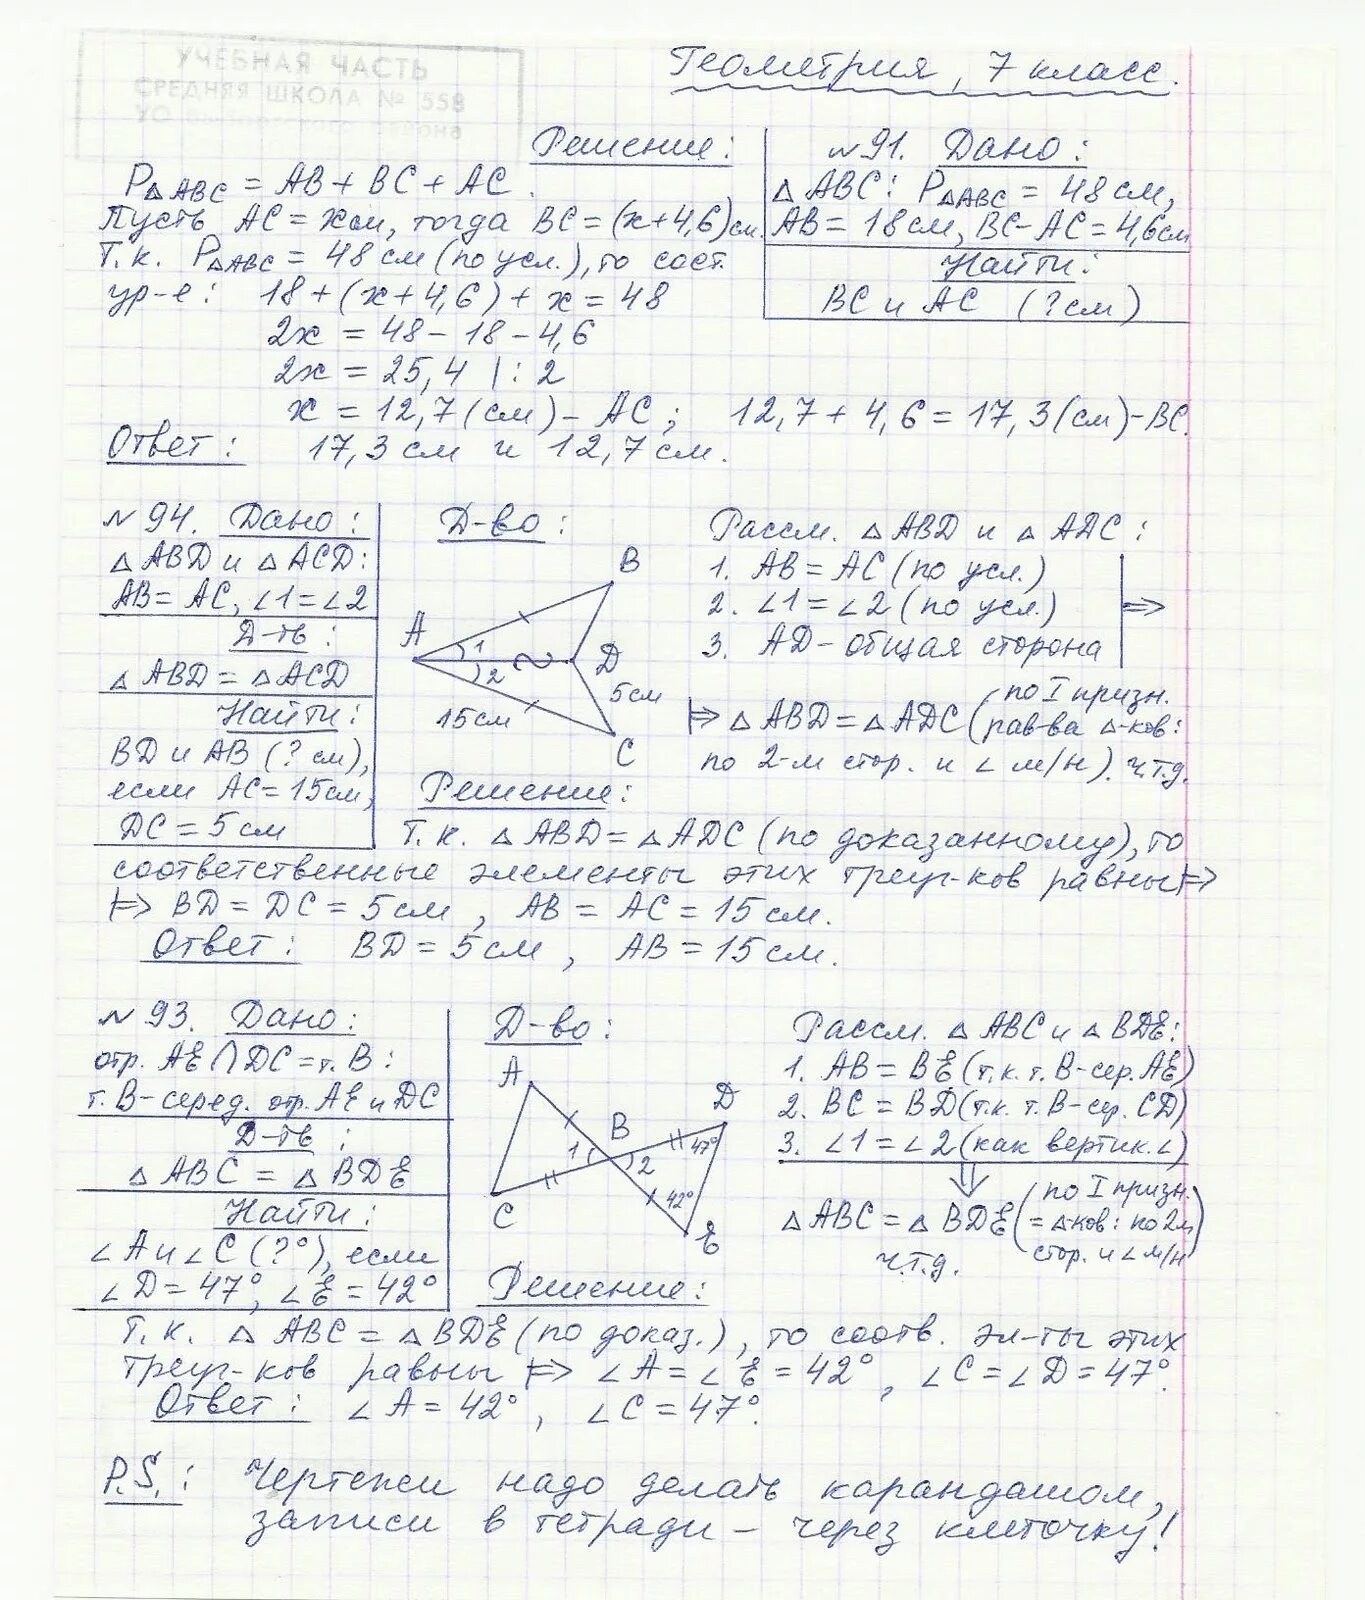 УЧЕБНАЯ ЧАСТЬ
СРЕДНЯЯ ШКОЛА № 558
УО
Геометрия, 7 класс.
Решение:
P△ABC = AB + BC + AC.
Пусть AC = x см, тогда BC = (x + 4,6) см.
Т.к. P△ABC = 48 см (по усл.), то сост.
ур-е: 18 + (x + 4,6) + x = 48
2x = 48 - 18 - 4,6
2x = 25,4 | : 2
x = 12,7 (см) - AC; 12,7 + 4,6 = 17,3 (см) - BC.
Ответ: 17,3 см и 12,7 см.
№ 91. Дано:
△ ABC: P△ABC = 48 см,
AB = 18 см, BC - AC = 4,6 см
Найти:
BC и AC (? см)
№ 94. Дано:
△ ABD и △ ACD:
AB = AC, ∠1 = ∠2
Д-ть:
△ ABD = △ ACD
Найти:
BD и AB (? см),
если AC = 15 см,
DC = 5 см
Д-во:
B
A
1
2
D
5 см
15 см
C
Рассм. △ ABD и △ ADC:
1. AB = AC (по усл.)
2. ∠1 = ∠2 (по усл.) ⇒
3. AD - общая сторона
⇒ △ ABD = △ ADC (по I призн.
рав-ва △-ков:
по 2-м стор. и ∠ м/н). ч.т.д.
Решение:
Т.к. △ ABD = △ ADC (по доказанному), то
соответственные элементы этих треуг-ков равны ⇒
⇒ BD = DC = 5 см, AB = AC = 15 см.
Ответ: BD = 5 см, AB = 15 см.
№ 93. Дано:
отр. AE ∩ DC = т. B:
т. B - серед. отр. AE и DC
Д-ть:
△ ABC = △ BDE
Найти:
∠A и ∠C (?°), если
∠D = 47°, ∠E = 42°
Д-во:
A
D
B
1
2
47°
42°
C
E
Рассм. △ ABC и △ BDE:
1. AB = BE (т.к. т. B - сер. AE)
2. BC = BD (т.к. т. B - сер. CD)
3. ∠1 = ∠2 (как вертик. ∠)
⇓
△ ABC = △ BDE (по I призн.
= △-ков: по 2м
стор. и ∠ м/н)
ч.т.д.
Решение:
Т.к. △ ABC = △ BDE (по доказ.), то соотв. эл-ты этих
треуг-ков равны ⇒ ∠A = ∠E = 42°, ∠C = ∠D = 47°.
Ответ: ∠A = 42°, ∠C = 47°.
P.S.: Чертежи надо делать карандашом,
записи в тетради - через клеточку!